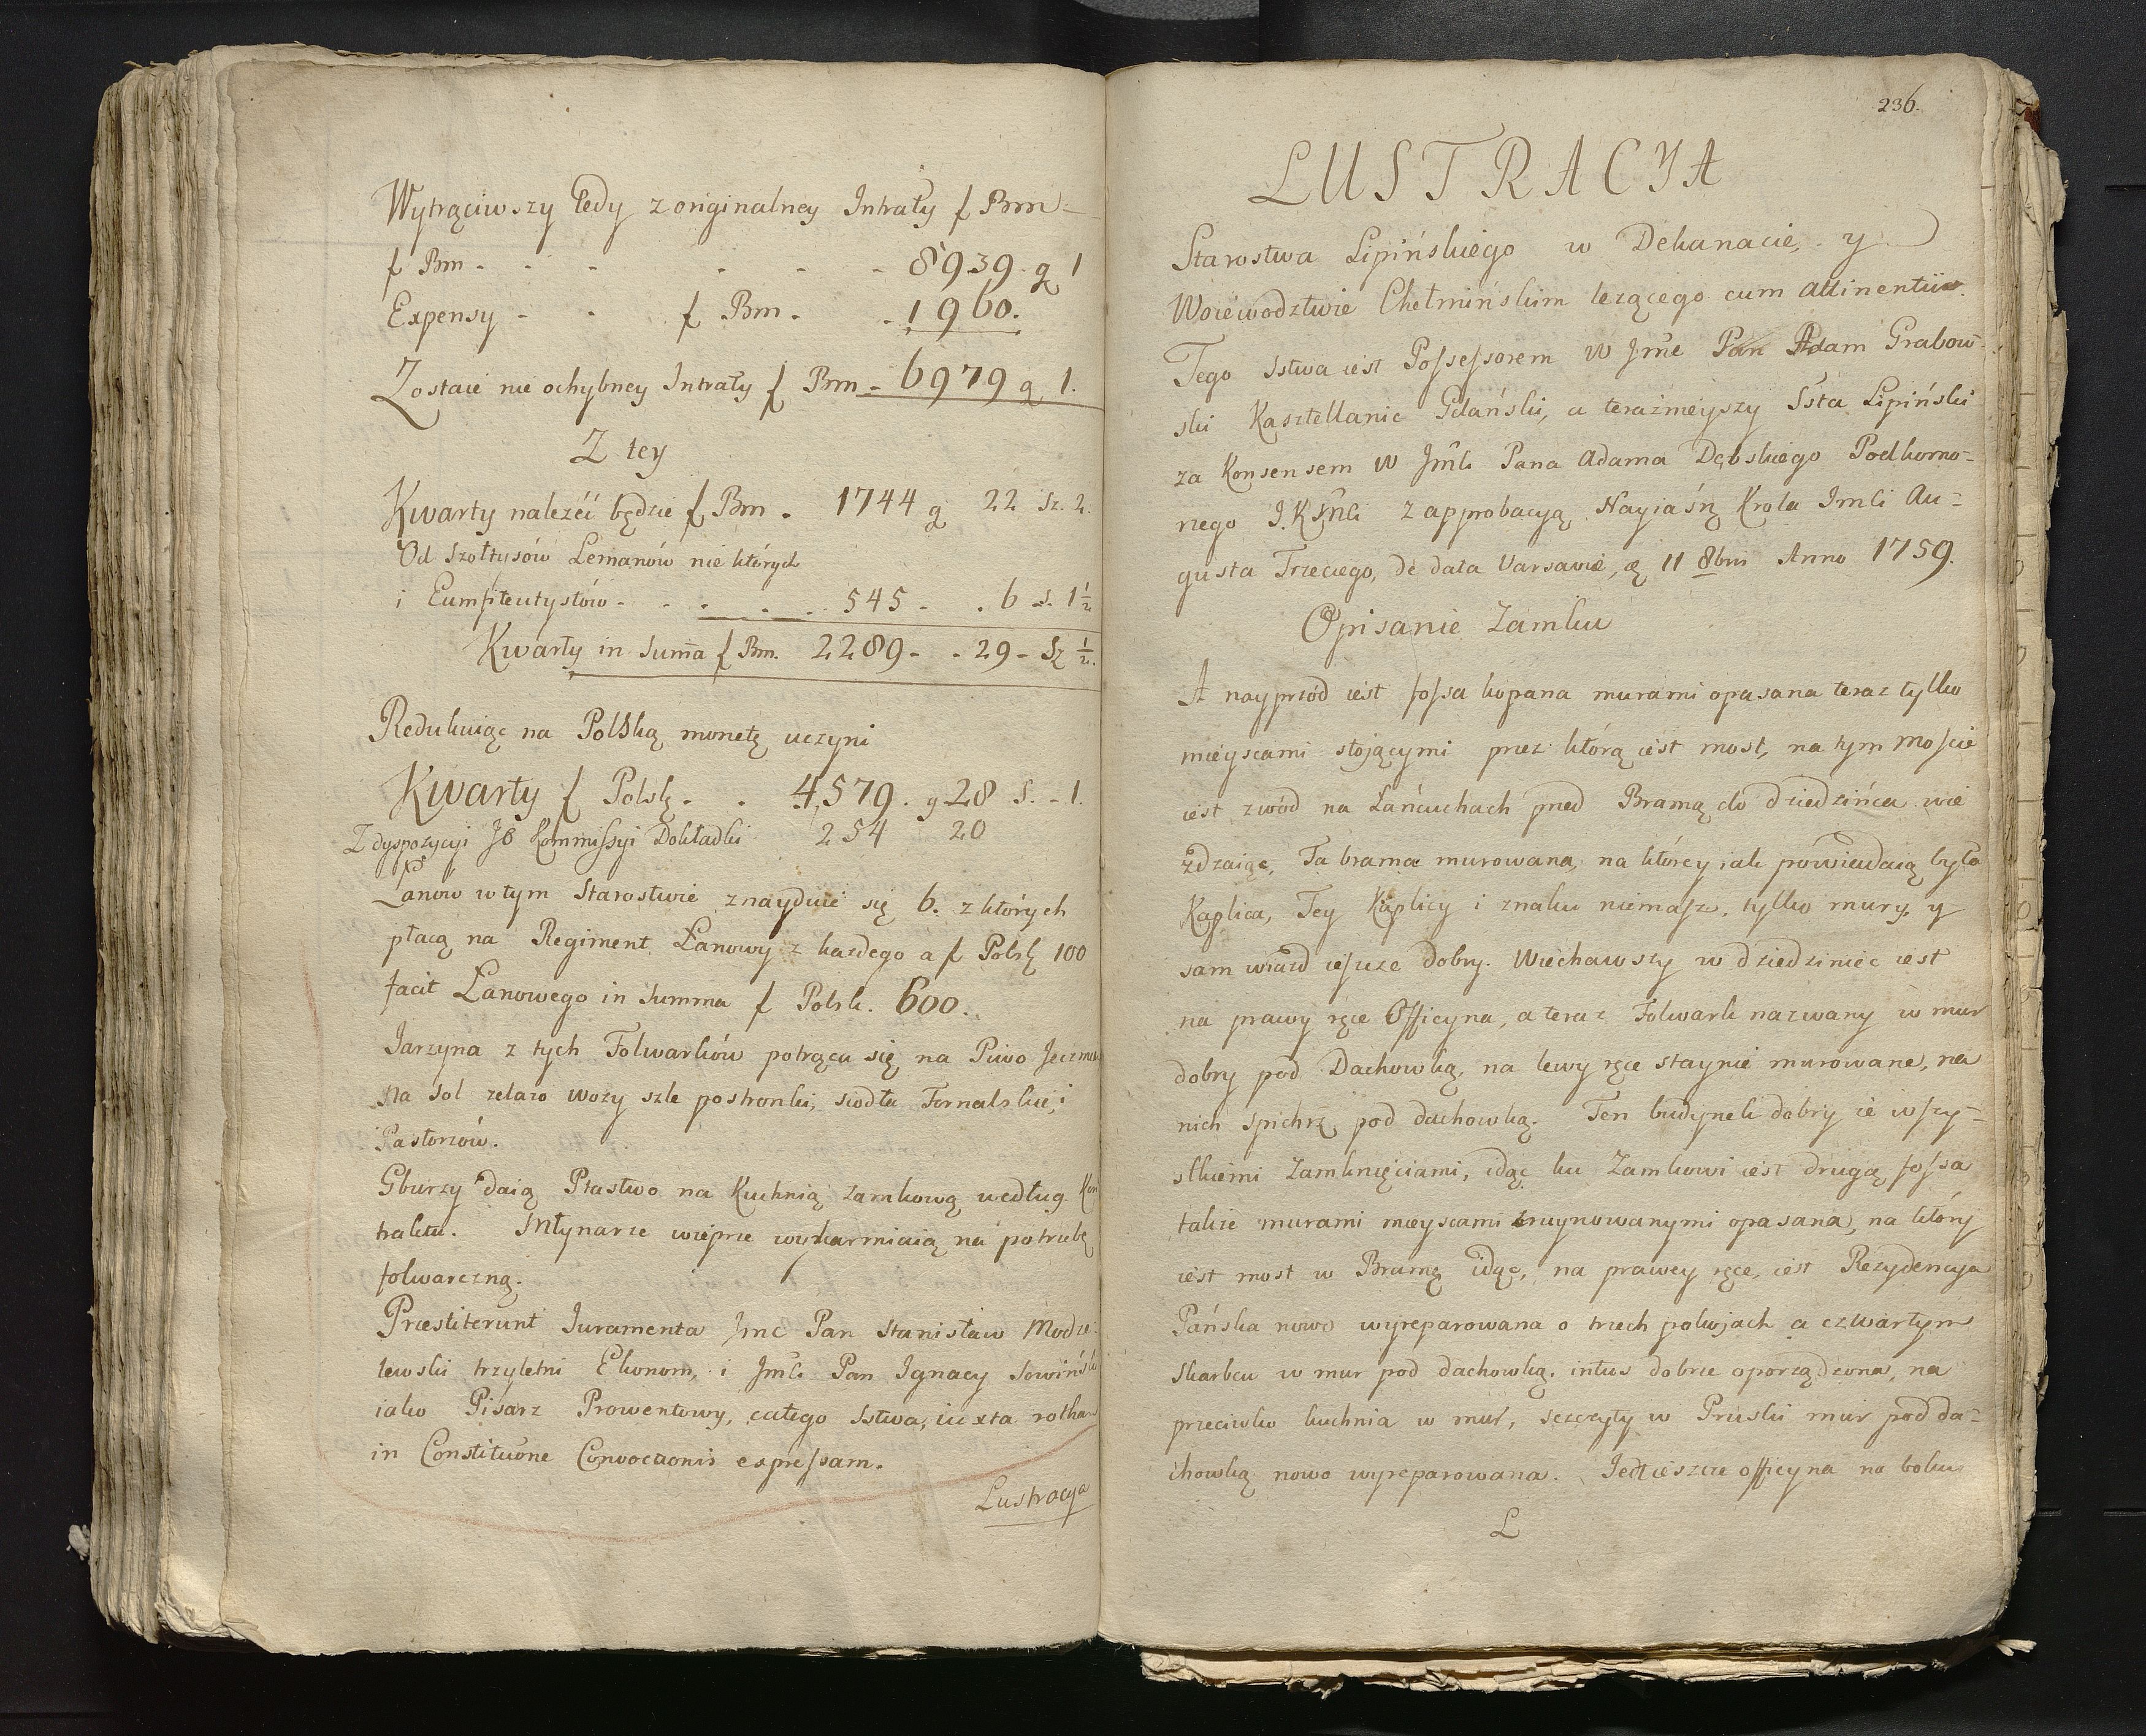 Wytrąciwszy tedy z originalney Intraty f Brm =
f Bm - - - - - - 8939 - g 1
Expensy - - f Bm - - 1960.
Zostaie nie ochybney Intraty f Prm - 6979 g 1.
Z tey
Kwarty należéć będzie f Bm - 1744 g 22 Sz. 2.
Od Szołtysów Lemanów nie których
i Eumfiteutystów - - - - - 545 - . 6 - s. 1 1/2
Kwarty in Sum̃a f Bm. 2289 - - 29 - Sz 1/2.
Redukuiąc na Polską monetę uczyni
Kwarty f Polsk - . 4,579 . g 28 S. - 1.
Z dyspozycyi JO Kommissyi Dokładki 254 20
Łanów w tym Starostwie znayduie się 6. z których
płacą na Regiment Łanowy z każdego a f Polsk 100
facit Łanowego in Summa f Polsk. 600.
Jarzyna z tych Folwarków potrąca się na Piwo Jeczmie
na Sol zelazo wozy szle postronki, siodła Fornalskie, i
Pastorzów.
Gburzy daią Ptastwo na Kuchnią zamkową według Kon
traktu. Młynarze wieprze wykarmiaią na potrzebę
folwarczną.
Præstiterunt Juramenta Jmć Pan Stanisław Modze-
lewski trzyletni Ekonom, i Jmć Pan Ignacy Sowiński
iako Pisarz Prowentowy, całego Sstwa, iuxta rotham
in Constituõne Convocãonis expressam.
Lustracya
236.
LUSTRACYA
Starostwa Lipińskiego w Dekanacie, y
Woiewodztwie Chełmińskim leżącego cum attinentiis.
Tego Sstwa iest Possessorem W Jmć Pan Adam Grabow-
ski Kasztellanic Gdański, a teraźnieyszy Ssta Lipiński
za Konsensem W Jmći Pana Adama Dębskiego Podkomo-
rzego J. K Mći z approbacyą Nayiaśn Krola Jmći Au-
gusta Trzeciego, de data Varsaviæ, d 11 8bris Anno 1759.
Opisanie Zamku
A nayprzód iest fossa kopana murami opasana teraz tylko
mieyscami stojącymi przez którą iest most, na tym Moście
iest zwód na Łańcuchach przed Bramą do dziedzińca wie
żdzaiąc, Ta brama murowana, na którey iak powiewdaią była
Kaplica, Tey Kaplicy i znaku niemasz, tylko mury, y
sam wiazd ieszcze dobry. Wiechawszy w dziedziniec iest
na prawy ręce Officyna, a teraz Folwark nazwany w mur
dobry pod Dachowką, na lewy ręce staynie murowane, na
nich spichrz pod dachowką. Ten budynek dobry ze wszy-
stkiemi Zamknięciami, idąc ku Zamkowi iest drugą fossa
także murami mieyscami zruynowanymi opasana, na który
iest most w Bramę idąc, na prawey ręce, iest Rezydencya
Pańska nowo wyreparowana o trzech pokojach a czwartym
Skarbcu w mur pod dachowką. intus dobrze oporządzona, na
przeciwko kuchnia w mur, sczczyty w Pruski mur pod da-
chowką nowo wyreparowana. Jest ieszcze officyna na boku
L